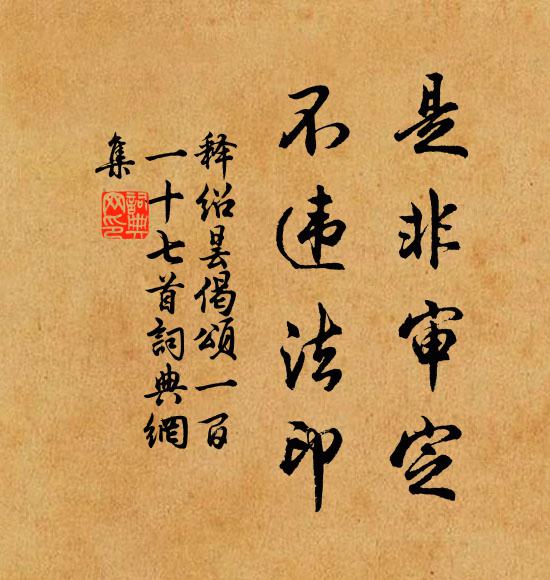 是非审定
不违法印
释绍昙偈颂一百
一十七首詞典網
集
詞典